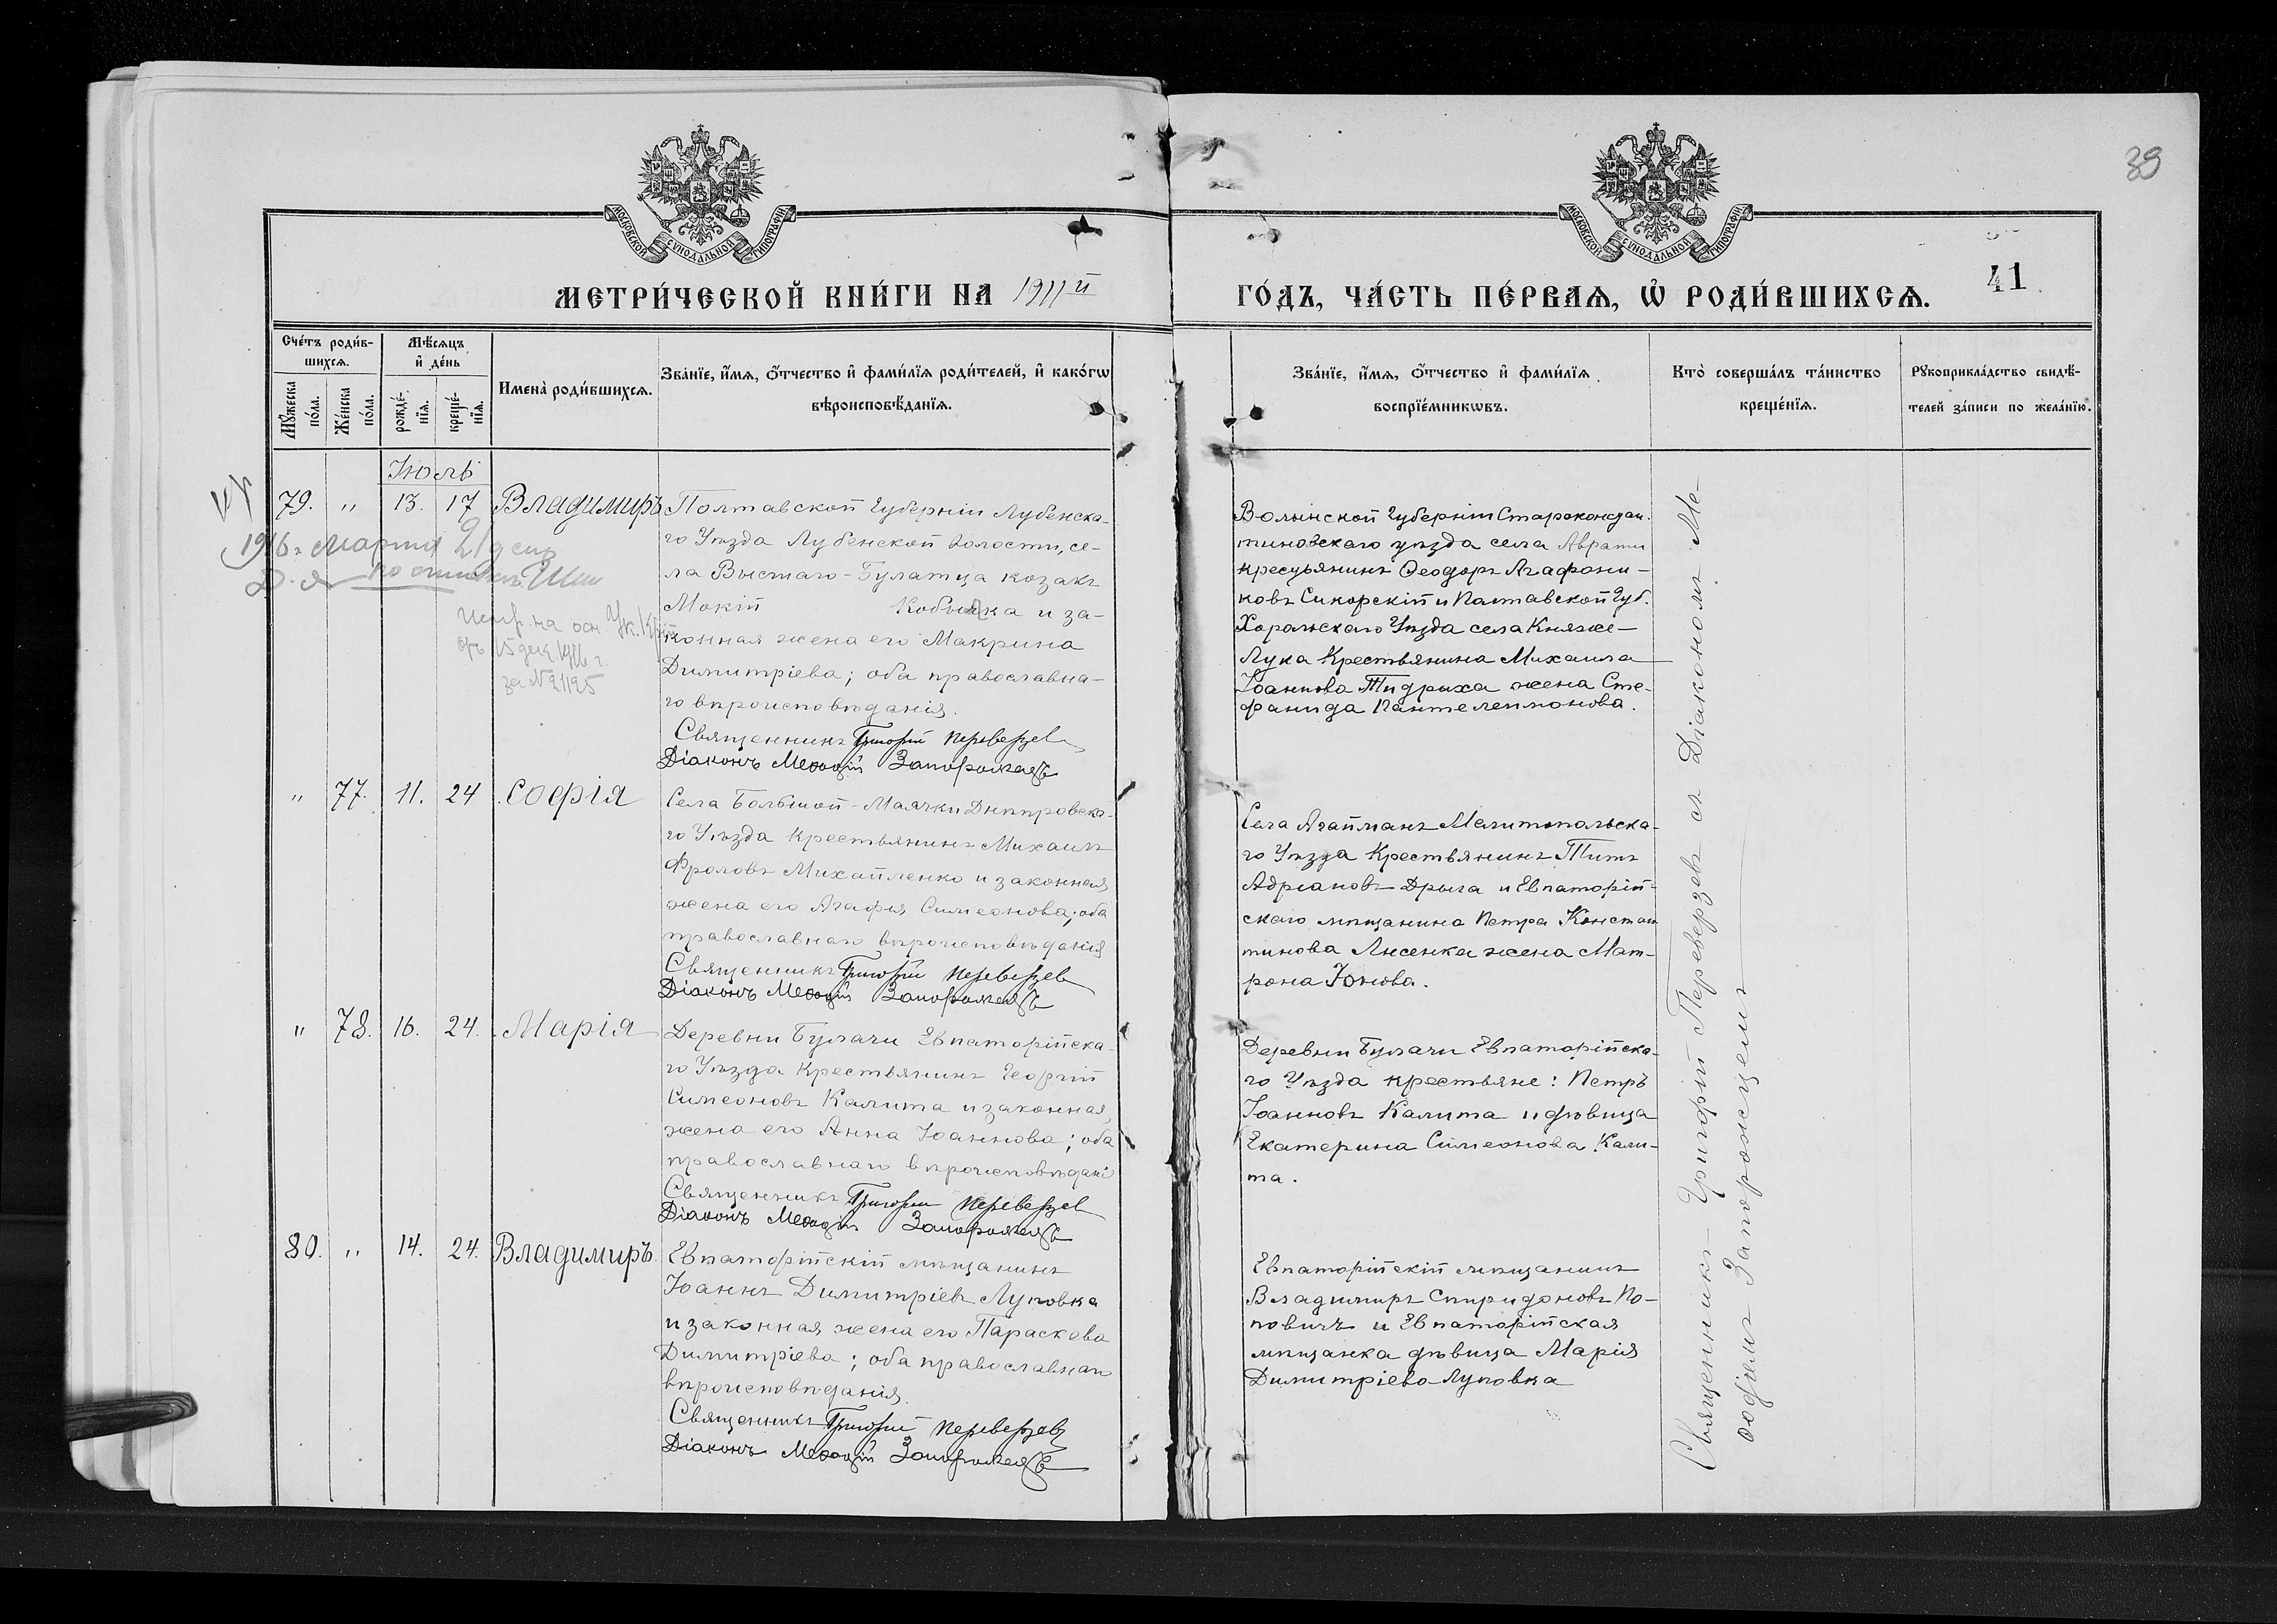 39
МОСКОВСКОЙ СѴНОДАЛЬНОЙ ТИПОГРАФІИ
МОСКОВСКОЙ СѴНОДАЛЬНОЙ ТИПОГРАФІИ
МЕТРИ́ЧЕСКОЙ КНИ́ГИ НА 1911й
ГО́ДЪ, ЧА́СТЬ ПЕ́РВАѦ, Ѡ҆ РОДИ́ВШИХСѦ.
41
Сче́тъ роди́в-
шихсѧ.
Мѣ́сѧцъ
и҆ де́нь
Мꙋ́жеска
по́ла.
Же́нска
по́ла.
рожде́-
нїѧ.
креще́-
нїѧ.
Имена̀ роди́вшихсѧ.
Зва́нїе, и҆́мѧ, ѻ҆́тчество и҆ фами́лїѧ роди́телей, и҆ како́гѡ
вѣроисповѣ́данїѧ.
Зва́нїе, и҆́мѧ, ѻ҆́тчество и҆ фами́лїѧ
воспрїе́мникѡвъ.
Кто̀ соверша́лъ та́инство
креще́нїѧ.
Рꙋкоприкла́дство свидѣ́-
телей за́писи по жела́нїю.
Июль
79. " 13. 17 Владимиръ
Полтавской Губерніи Лубенска-
го Уѣзда Лубенской волости, се-
ла Высшаго-Булатца козакъ
Мокій Кобылка и за-
конная жена его Макрина
Димитріева; оба православна-
го вѣроисповѣданія.
Священникъ Григорій Переверзев
Діаконъ Меѳодій Запорожецъ
1916 г. марта 21
по
на осн. Ук.
15 дек. 1916 г.
за № 21125
Волынской Губерніи Староконстан-
тиновскаго уѣзда села Аврати
крестьянинъ Ѳеодоръ Агафони-
ковъ Сикорскій и Полтавской Губ.
Хорольскаго Уѣзда села Княже-
Лука Крестьянина Михаила
Іоаннова Тидриха жена Сте-
фанида Пантелеимонова.
" 77. 11. 24 Софія
Села Большой-Маячки Днѣпровска-
го Уѣзда крестьянинъ Михаилъ
Фроловъ Михайленко и законная
жена его Агафія Симеонова; оба
православнаго вѣроисповѣданія
Священникъ Григорій Переверзев
Діаконъ Меѳодій Запорожецъ
Села Агайманъ Мелитопольска-
го Уѣзда Крестьянинъ Титъ
Адріановъ Дрыга и Евпаторій-
скаго мѣщанина Петра Констан
тинова Лисенка жена Мат-
рона Іонова.
" 78. 16. 24. Марія
Деревни Булачи Евпаторійска-
го Уѣзда Крестьянинъ Георгій
Симеоновъ Калита и законная
жена его Анна Іоаннова; оба
православнаго вѣроисповѣдані
Священникъ Григорій Переверзев
Діаконъ Меѳодій Запорожецъ
Деревни Булачи Евпаторійска-
го Уѣзда крестьяне: Петръ
Іоанновъ Калита и дѣвица
Екатерина Симеонова Кали-
та.
80. " 14. 24. Владимиръ
Евпаторійскій мѣщанинъ
Іоаннъ Димитріевъ Луповка
и законная жена его Параскева
Димитріева; оба православнаго
вѣроисповѣданія
Священникъ Григорій Переверзев
Діаконъ Меѳодій Запорожецъ
Евпаторійскій мѣщанинъ
Владимиръ Спиридоновъ По-
повичъ и Евпаторійская
мѣщанка дѣвица Марія
Димитріева Луповка
Священникъ Григорій Переверзевъ съ Діакономъ Ме-
ѳодіемъ Запорожцемъ